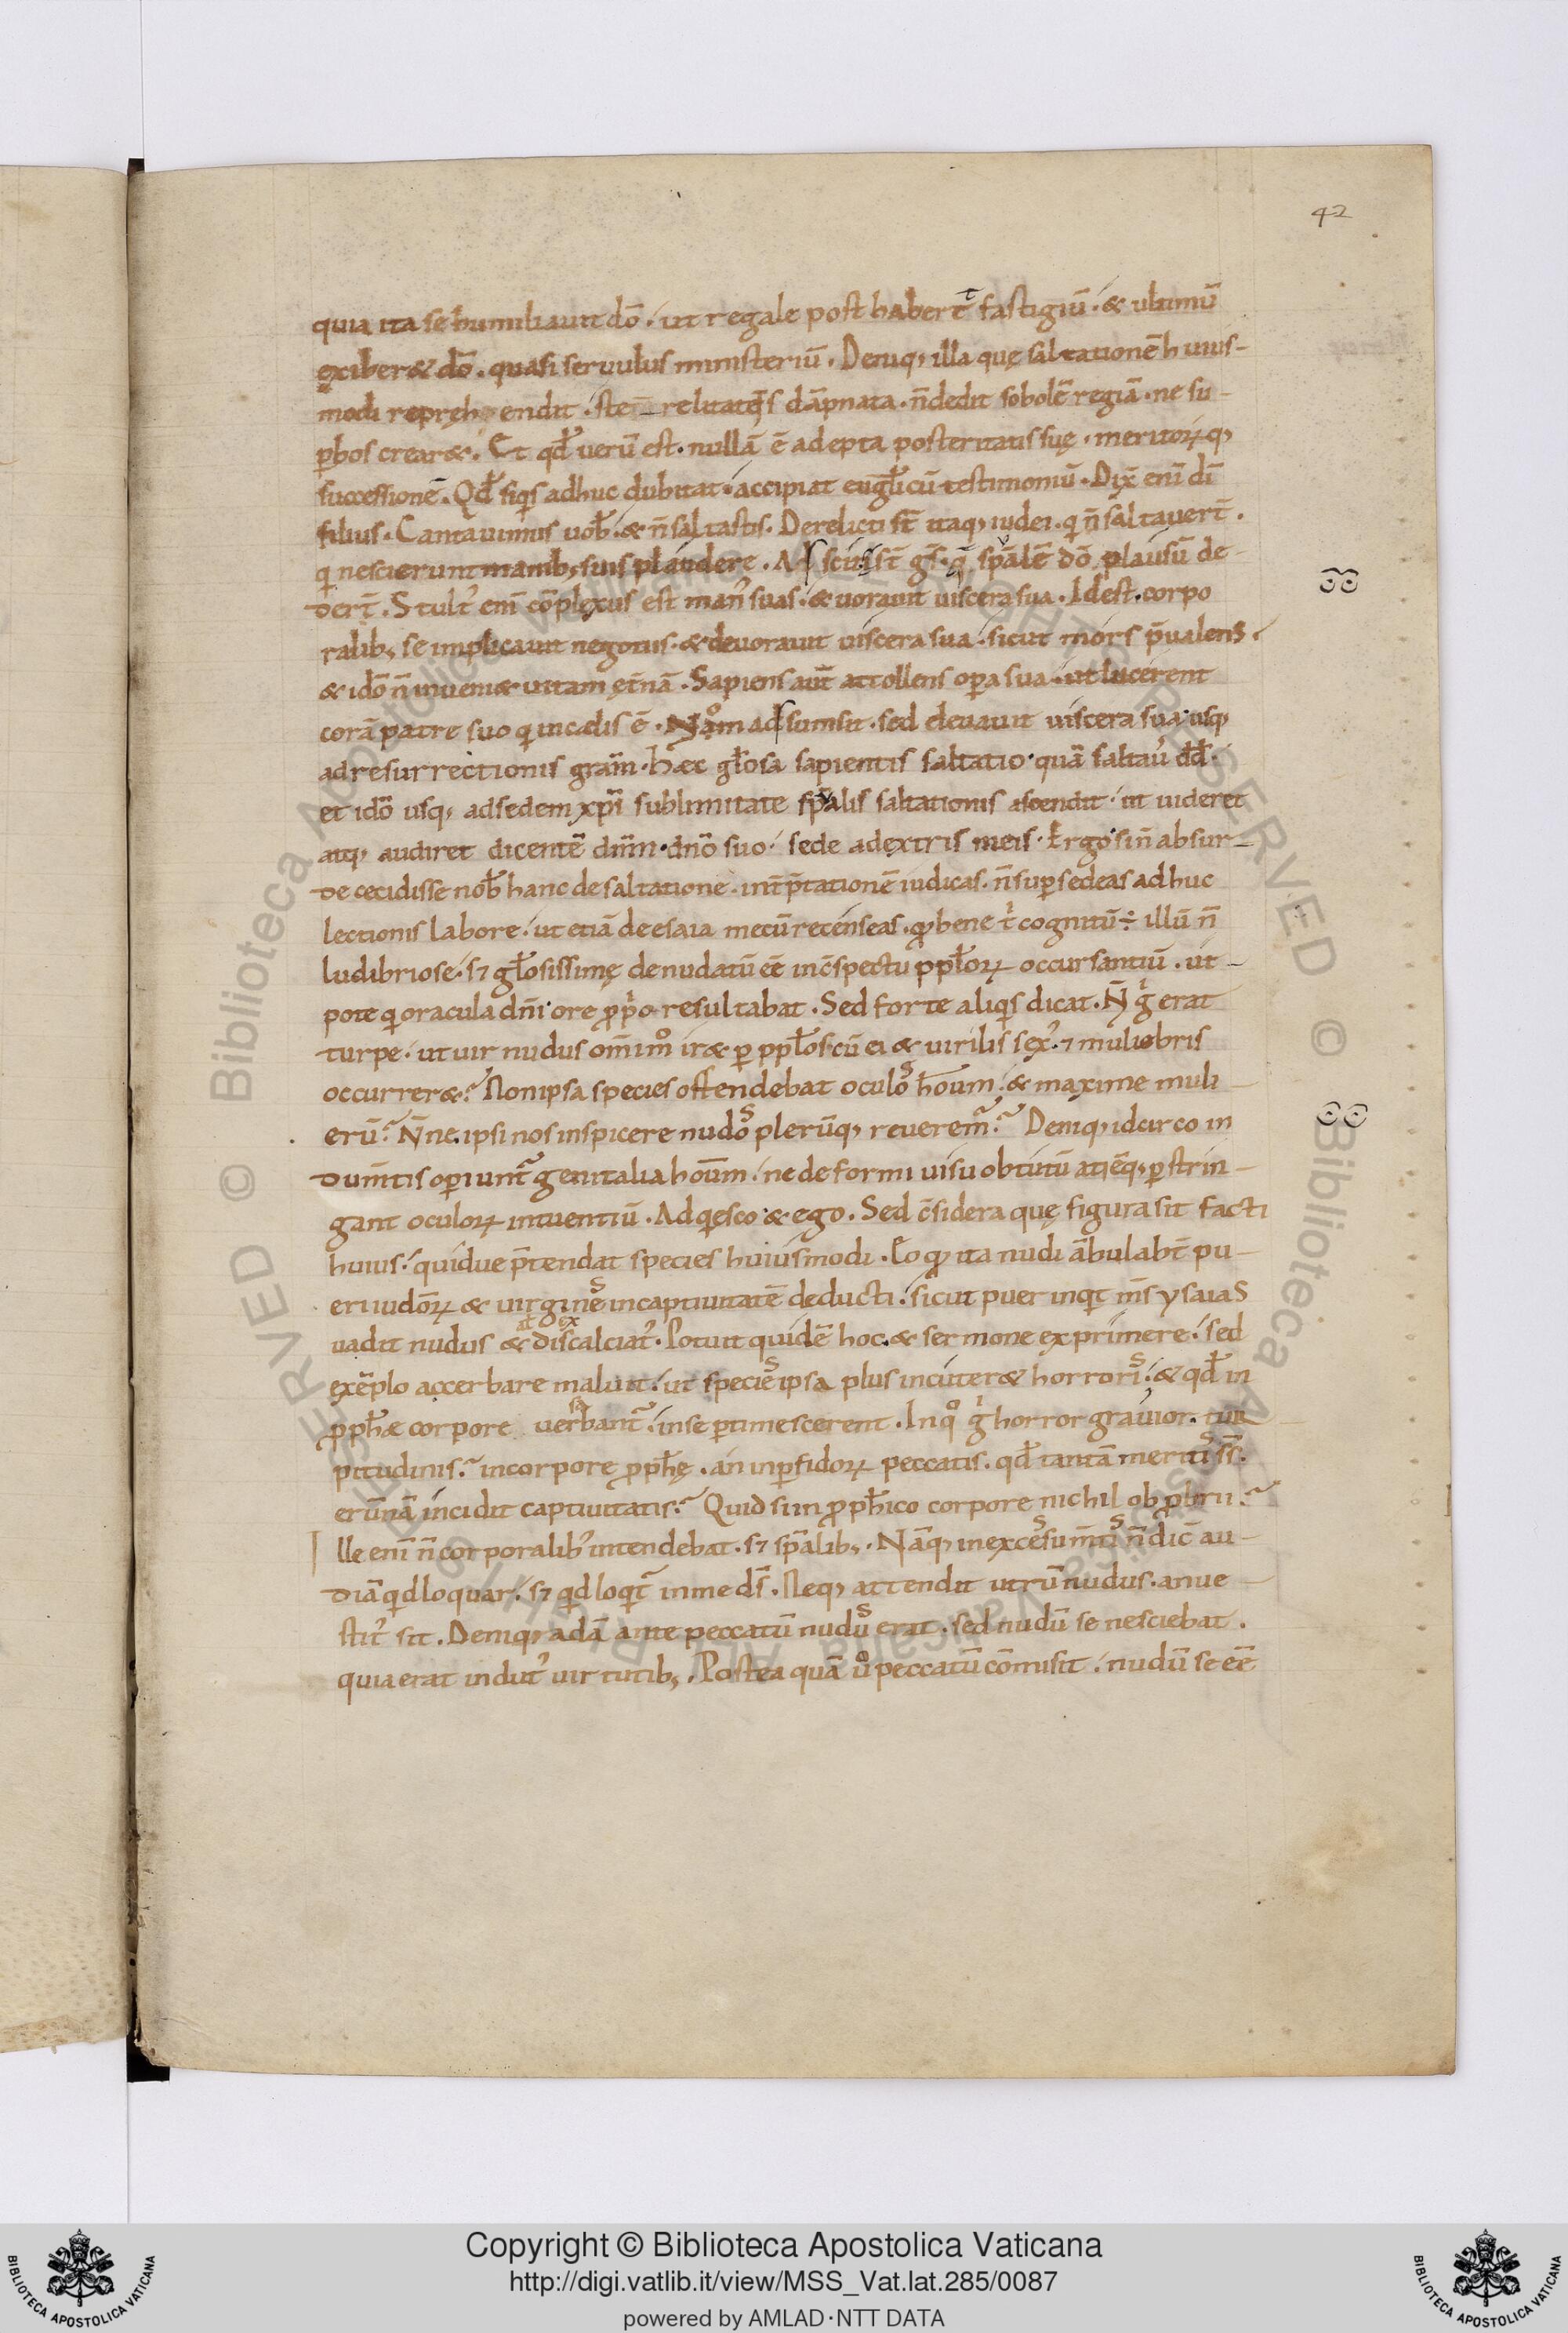 42
quia ita se humiliauit dō. ut regale post habert̄ fastigiū. & ultimū
exiber& dō. quasi seruulus ministeriū. Deniq; illa quę saltationē huius-
modi repręhendit. ste relitatẽs dāpnata. n̄ dedit sobolē regiā. ne su-
ꝑbos crear&. Et qđ uerū est. nullā ē adepta posteritatis suę. meritoꝝq;
successionē. Qđ siqͥs adhuc dubitat. accipiat eugłicū testimoniū. Dix̄ enī dī
filius. Cantauimus uob. & n̄ saltastis. Derelicti st̄ itaq; iudei. qͥ n̄ saltauert̄.
qͥ nescierunt manib; suis plaudere. Adscitis st̄ gs̄. qͥ spālē dō plausū de-
dert̄. Stult᾽ enī cōplexus est man᾽ suas. & uorauit uiscera sua. Idest. corpo
ralib; se implicauit negotiis. & deuorauit uiscera sua. sicut mors p̄ualens.
& idō n̄ inueni& uitam ęt̄nā. Sapiens aut̄ attollens oꝑa sua. ut lucerent
corā patre suo qͥ in cælis ē. Nom adsumsit. sed eleuauit uiscera sua usq;
ad resurrectionis grām. Hæc głosa sapientis saltatio. quā saltau᾽ dđ.
et idō usq; ad sedem xp̄i sublimitate spālis saltationis ascendit. ut uideret
atq; audiret dicentē dnm̄. dnō suo. sede adextris meis. Ergo si n̄ absur-
de cecidisse nob hanc de saltatione. int̄p̄tationē iudicas. n̄ suꝑsedeas ad huc
lectionis labore. ut etiā de esaia mecū recenseas. qđ bene tͥ cognitū ÷ illū n̄
ludibriose. s; głosissimę denudatū eē in c̄spectu ppłoꝝ occursantiū. ut-
pote qͥ oracula dn̄i ore ꝓpͥo resultabat. Sed forte aliqͥs dicat. N̄ gͥ erat
turpe. ut uir nudus om̄imo ir& ꝑ ppłos cū ei & uirilis sex᾽. ⁊ muliebris
occurrer&? Non ipsa species offendebat oculos hoūm. & maxime muli-
erū? N̄ne ipsi nos inspicere nudos plerūq; reuerem̄? Deniq; idcirco in
dum̄tis oꝑiunt̄ genitalia hoūm. ne deformi uisu obtutū atiēq; ꝑstrin-
gant oculoꝝ intuentiū. Adqͥesco & ego. Sed c̄sidera quę figura sit facti
huius. quidue p̄tendat species huiusmodi. Eo qđ ita nudi ābulabt̄ pu-
eri iudōꝝ & uirgines in captiuitatē deducti. sicut puer inqͥt m̄s ysaias
uadit nudus & discalciat᾽. Potuit quidē hoc. & sermone exprimere. sed
exēplo accerbare maluit. ut species ipsa plus incuter& horroris. & qđ in
ꝓph̄æ corpore uerebant̄. in se ꝑtimescerent. In qo gͥ horror grauior. tur
pitudinis? in corpore ꝓph̄ę. an in ꝑfidoꝝ peccatis. qđ tantā meritis s̄s̄.
erūnā incidit captiuitatis? Quid si in ꝓph̄ico corpore nichil obꝓbrii?
Ille enī n̄ corporalib᾽ intendebat. s; spālib;. Nāq; in excessu m̄tis n̄ dic̄ au-
diā qͥd loquar. s; qͥd loqͥt̄ in me ds̄. Neq; attendit utrū nudus. an ue-
stit᾽ sit. Deniq; adā ante peccatū nudus erat. sed nudū se nesciebat.
quia erat indut᾽ uirtutib;. Postea quā uo peccatū cōmisit. nudū se eē
Copyright © Biblioteca Apostolica Vaticana
http://digi.vatlib.it/view/MSS_Vat.lat.285/0087
powered by AMLAD·NTT DATA